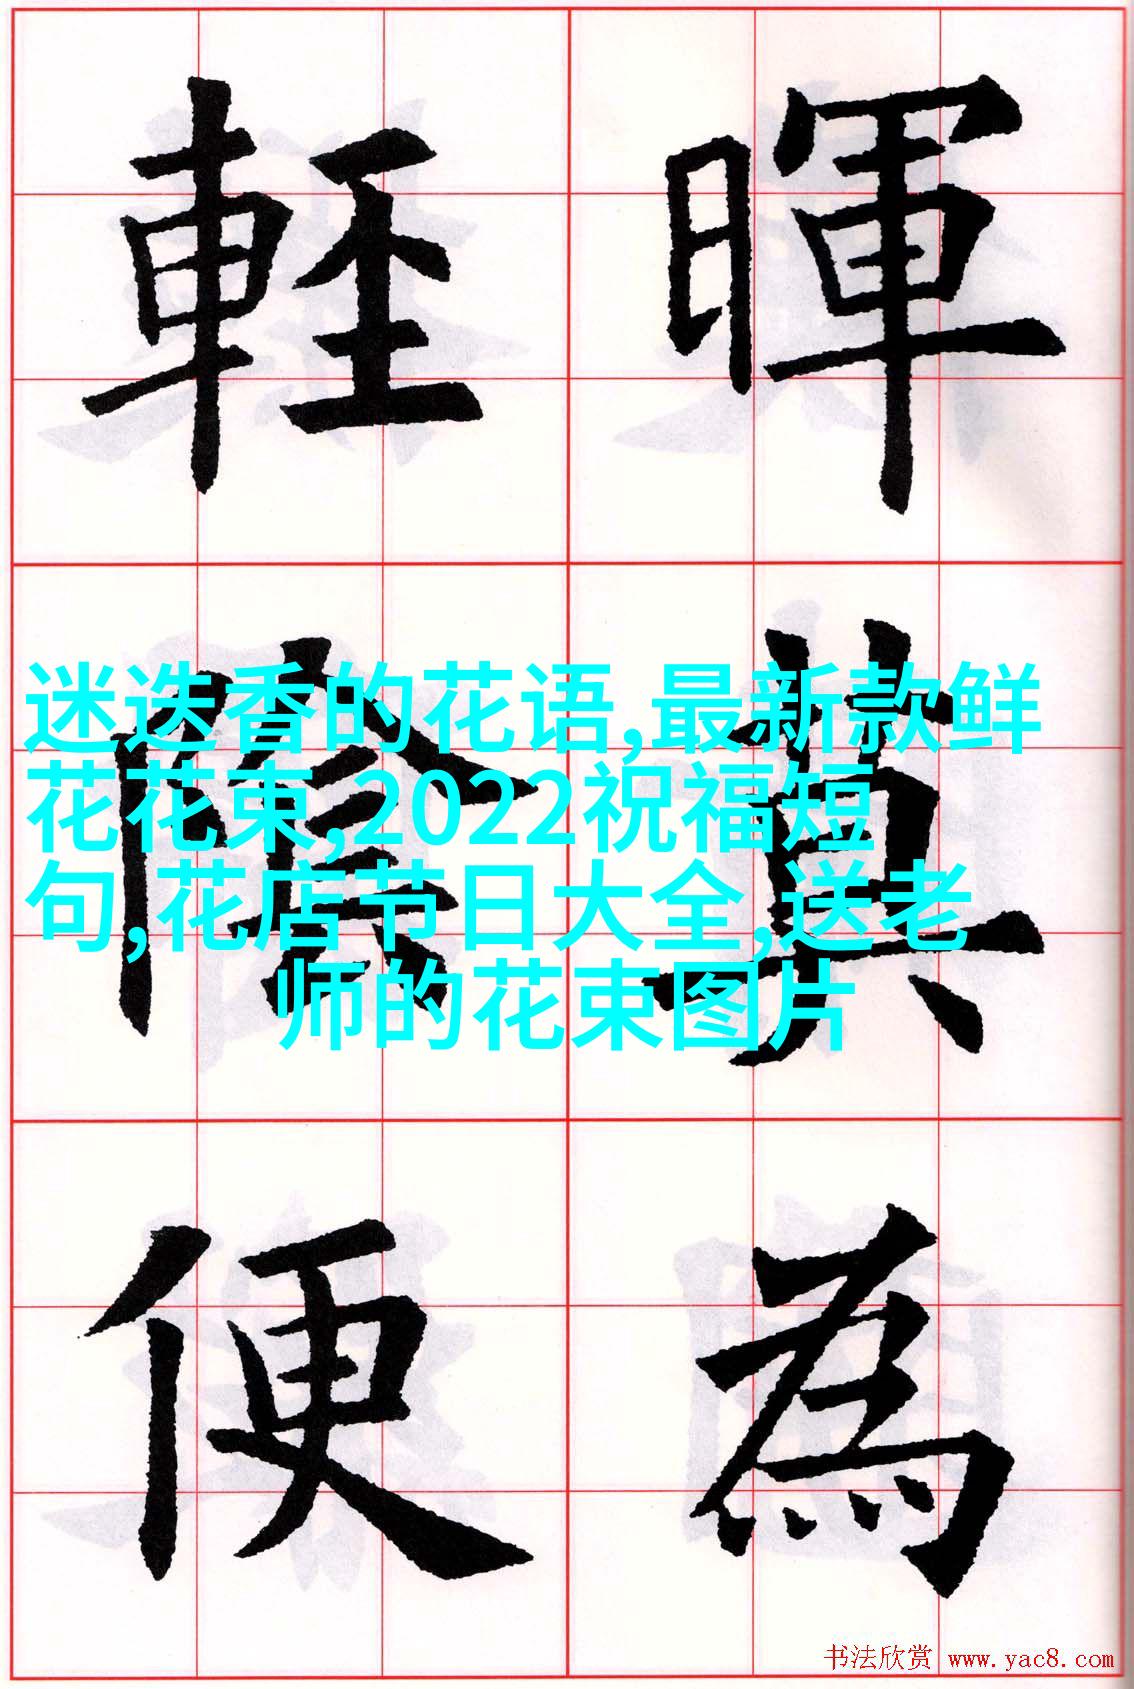 暉莫為
輕陰便
迷迭香的花语,最新款鲜
花花束,2022祝福短
句,花店节日大全,送老
师的花束图片
书法欣赏 www.yac8.com